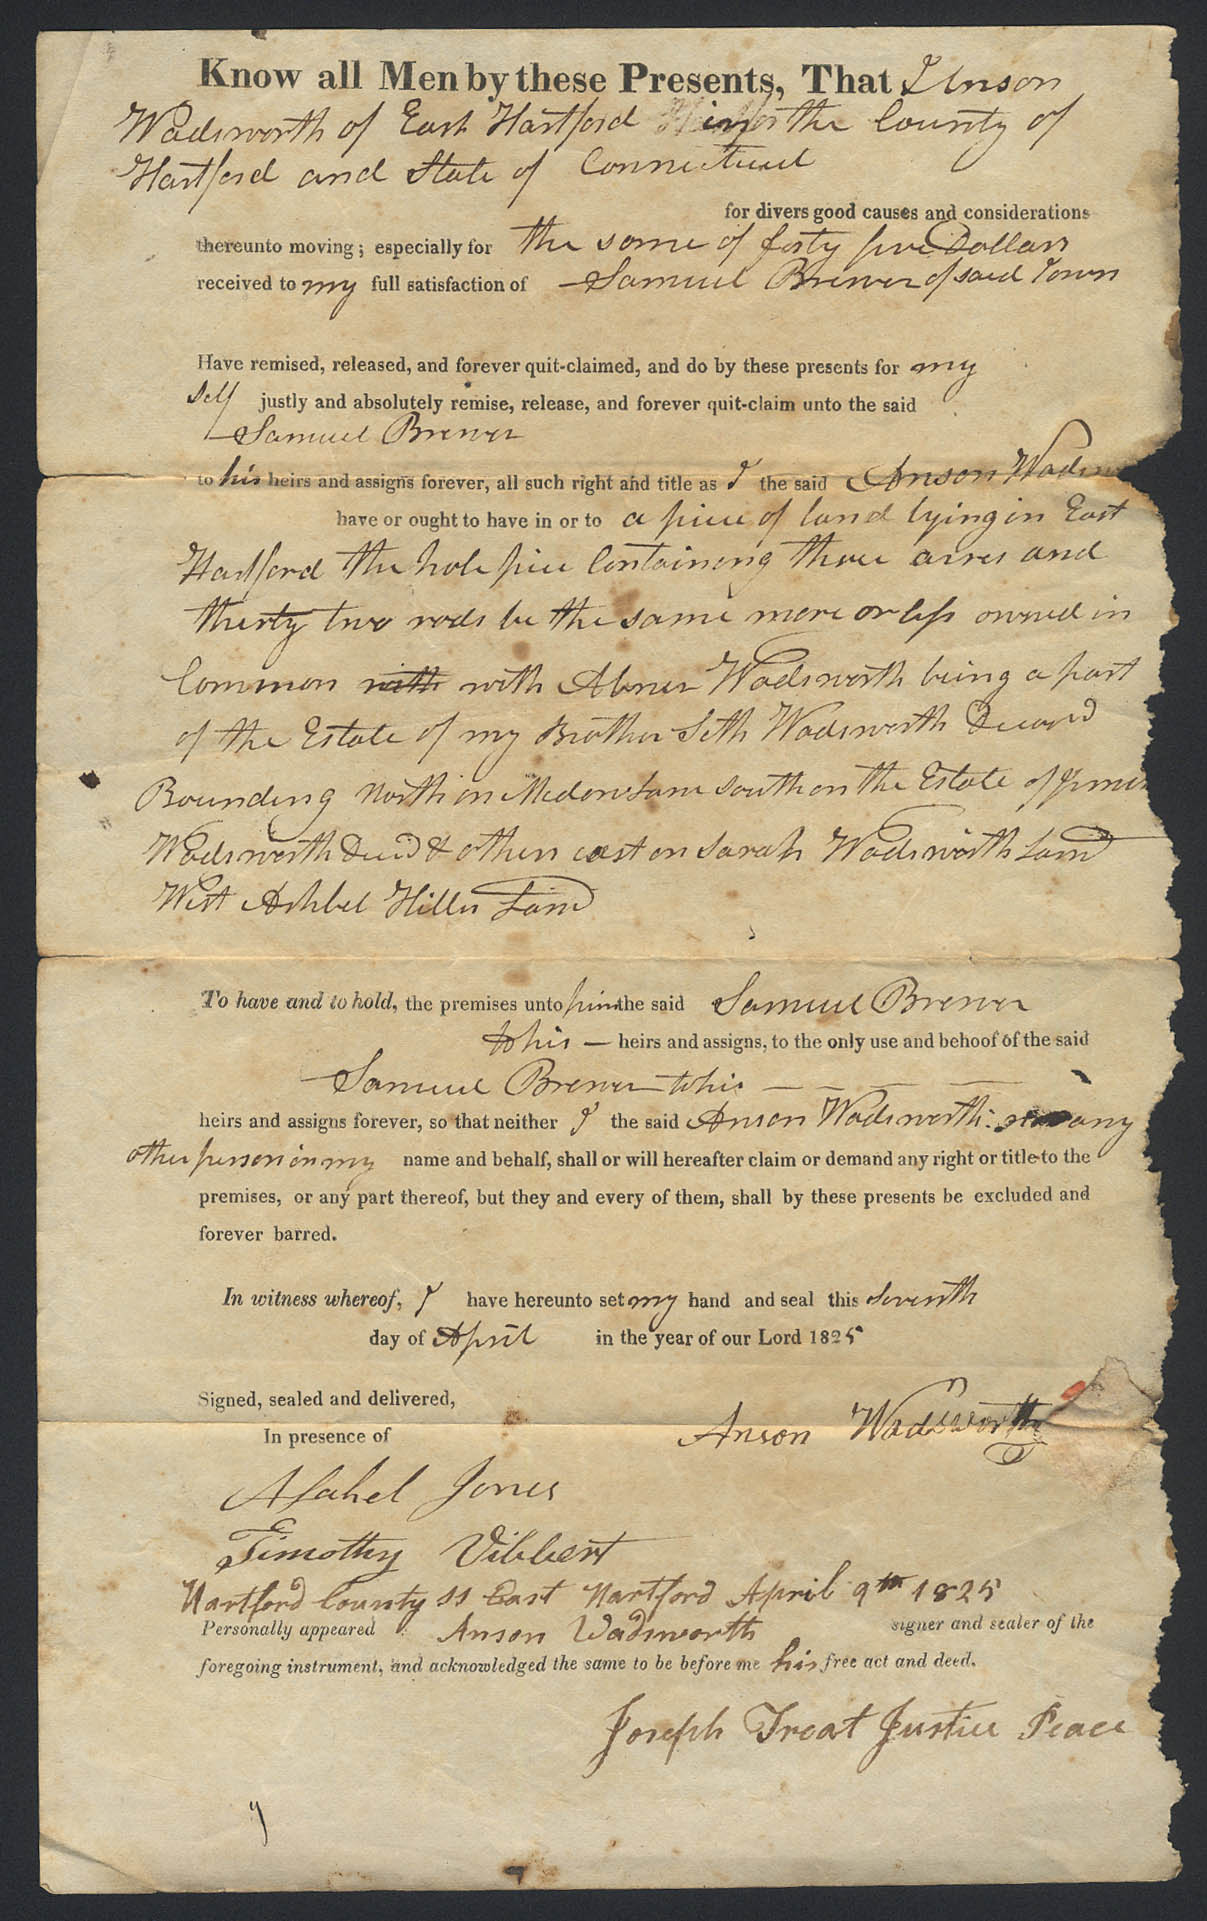 Know all Men by these Presents, That I Anson
Wadsworth of East Hartford in the County of
Hartford and State of Connecticut
for divers good causes and considerations
thereunto moving; especially for the some of forty five Dollars
received to my full satisfaction of Samuel Brewer of said Town
Have remised, released, and forever quit-claimed, and do by these presents for my
self justly and absolutely remise, release, and forever quit-claim unto the said
Samuel Brewer
to his heirs and assigns forever, all such right and title as I the said Anson Wadsw
have or ought to have in or to a piece of land lying in East
Hartford the hole piece Containing three acres and
thirty two rods be the same more or less owned in
Common with with Abner Wadsworth being a part
of the Estate of my Brother Seth Wadsworth Decesd
Bounding North on Medow Lane South on the Estate of
Wadsworth Decd & others east on Sarah Wadsworth Land
West Ashbel Hills Land
To have and to hold, the premises unto him the said Samuel Brewer
to his — heirs and assigns, to the only use and behoof of the said
Samuel Brewer to his — — — —
heirs and assigns forever, so that neither I the said Anson Wadsworth nor any
other person in my name and behalf, shall or will hereafter claim or demand any right or title to the
premises, or any part thereof, but they and every of them, shall by these presents be excluded and
forever barred.
In witness whereof, I have hereunto set my hand and seal this Seventh
day of April in the year of our Lord 1825
Signed, sealed and delivered,
In presence of
Anson Wadsworth
Asahel Jones
Timothy Vibbert
Hartford County ss East Hartford April 9th 1825
Personally appeared Anson Wadsworth signer and sealer of the
foregoing instrument, and acknowledged the same to be before me his free act and deed.
Joseph Treat Justice Peace